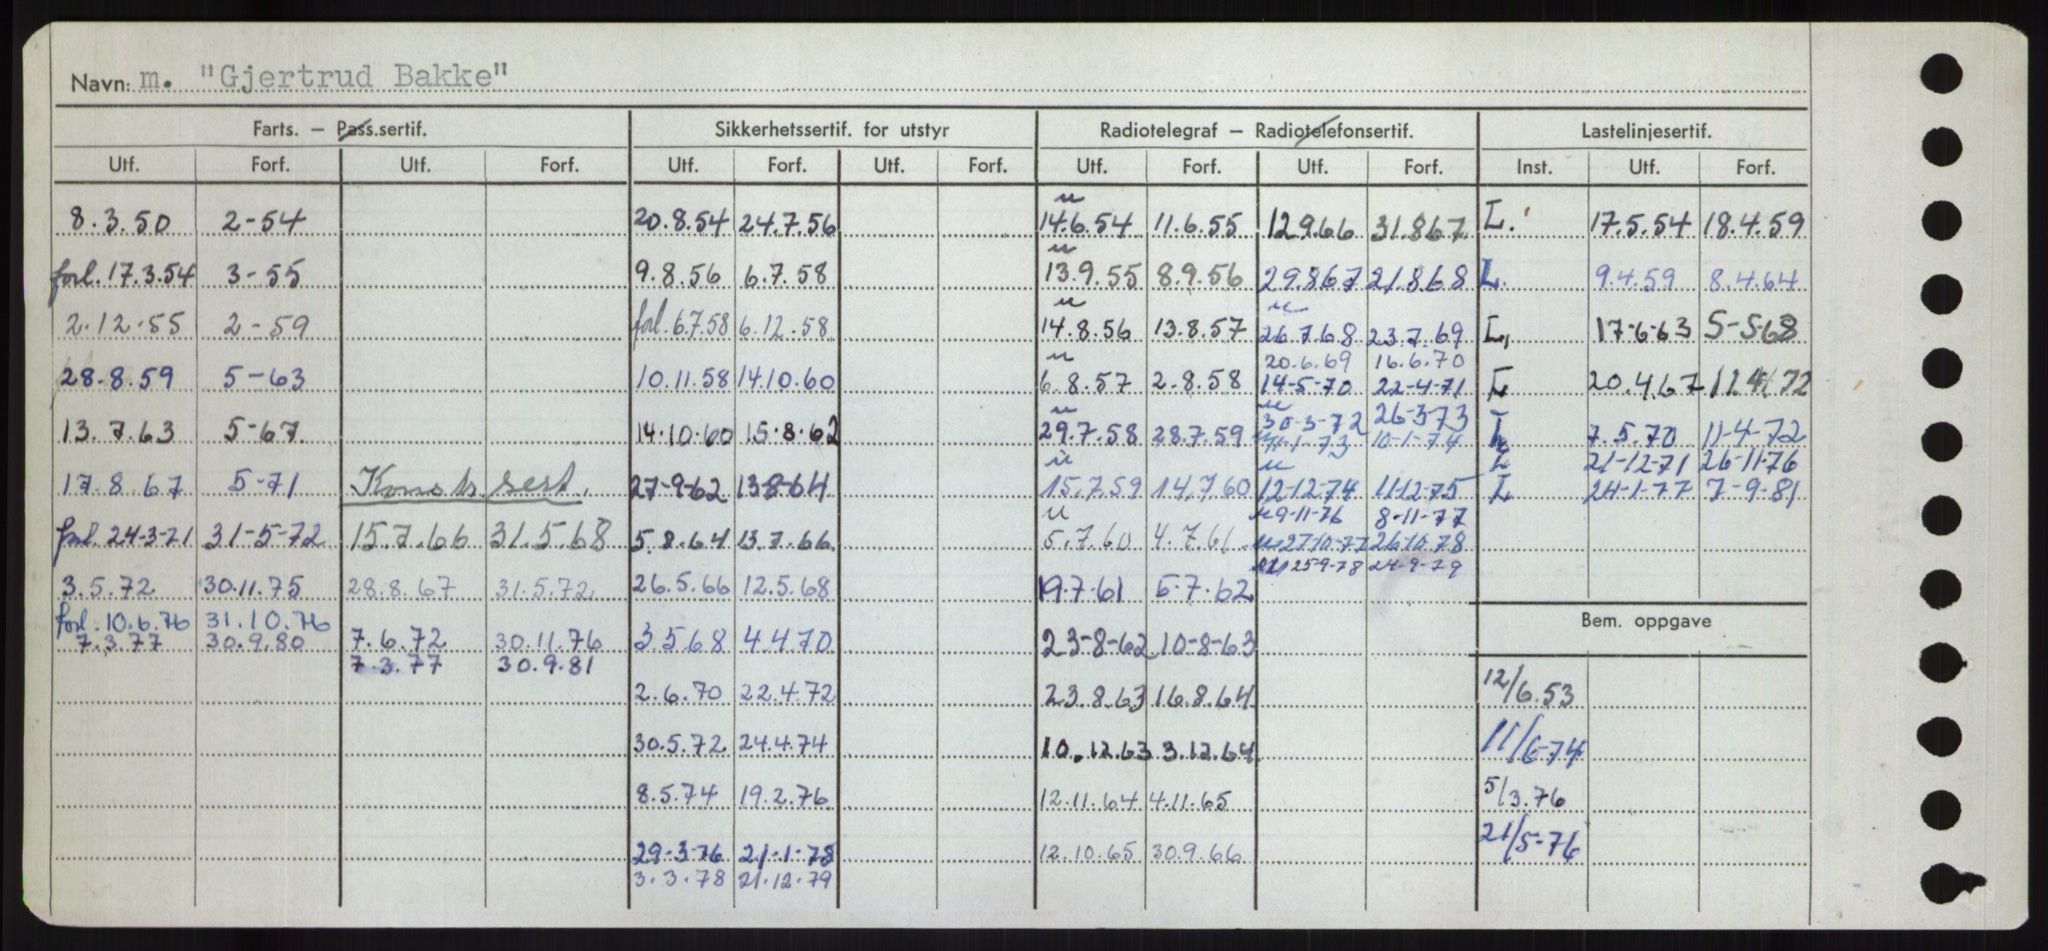 Navn: m. "Gjertrud Bakke"
Farts. — Pass.sertif. Sikkerhetssertif. for utstyr Radiotelegraf — Radiotelefonsertif. Lastelinjesertif.
Utf. Forf. Utf. Forf. Utf. Forf. Utf. Forf. Utf. Forf. Utf. Forf. Inst. Utf. Forf.
8.3.50 2-54 20.8.54 24.7.56 14.6.54 11.6.55 12.9.66 31.8.67 L. 17.5.54 18.4.59
forl. 17.3.54 3-55 9.8.56 6.7.58 13.9.55 8.9.56 29.8.67 21.8.68 L. 9.4.59 8.4.64
2.12.55 2-59 forl. 6.7.58 6.12.58 14.8.56 13.8.57 26.7.68 23.7.69 L, 17-6-63 5-5-68
20.6.69 16.6.70
28.8.59 5-63 10.11.58 14.10.60 6.8.57 2.8.58 14-5-70 22-4-71 L 20.4.67 12.4.72
30-3-72 26-3-73
13.7.63 5-67 14.10.60 15.8.62 29.7.58 28.7.59 11-1-73 10-1-74 L 7.5.70 11-4-72
L 21-12-71 26-11-76
17.8.67 5-71 Konst. sert. 27-9-62 13-8-64 15.7.59 14.7.60 12-12-74 11-12-75 L 24-1-77 7-9-81
9-11-76 8-11-77
forl. 24-3-71 31-5-72 15.7.66 31.5.68 5.8.64 13.7.66 5.7.60 4.7.61 27-10-77 26-10-78
25-9-78 24-9-79
3.5.72 30.11.75 28.8.67 31.5.72 26.5.66 12.5.68 19.7.61 5.7.62
forl. 10.6.76 31.10.76 Bem. oppgave
7.3.77 30.9.80 7.6.72 30.11.76 3.5.68 4.4.70 23-8-62 10-8-63
7.3.77 30.9.81
2.6.70 22.4.72 23.8.63 16.8.64 12/6.53
30.5.72 24.4.74 10.12.63 3.12.64 11/6-74
8.5.74 19.2.76 12.11.64 4.11.65 5/3.76
29-3-76 21-1-78 12.10.65 30.9.66 21/5-76
3.3.78 21.12.79